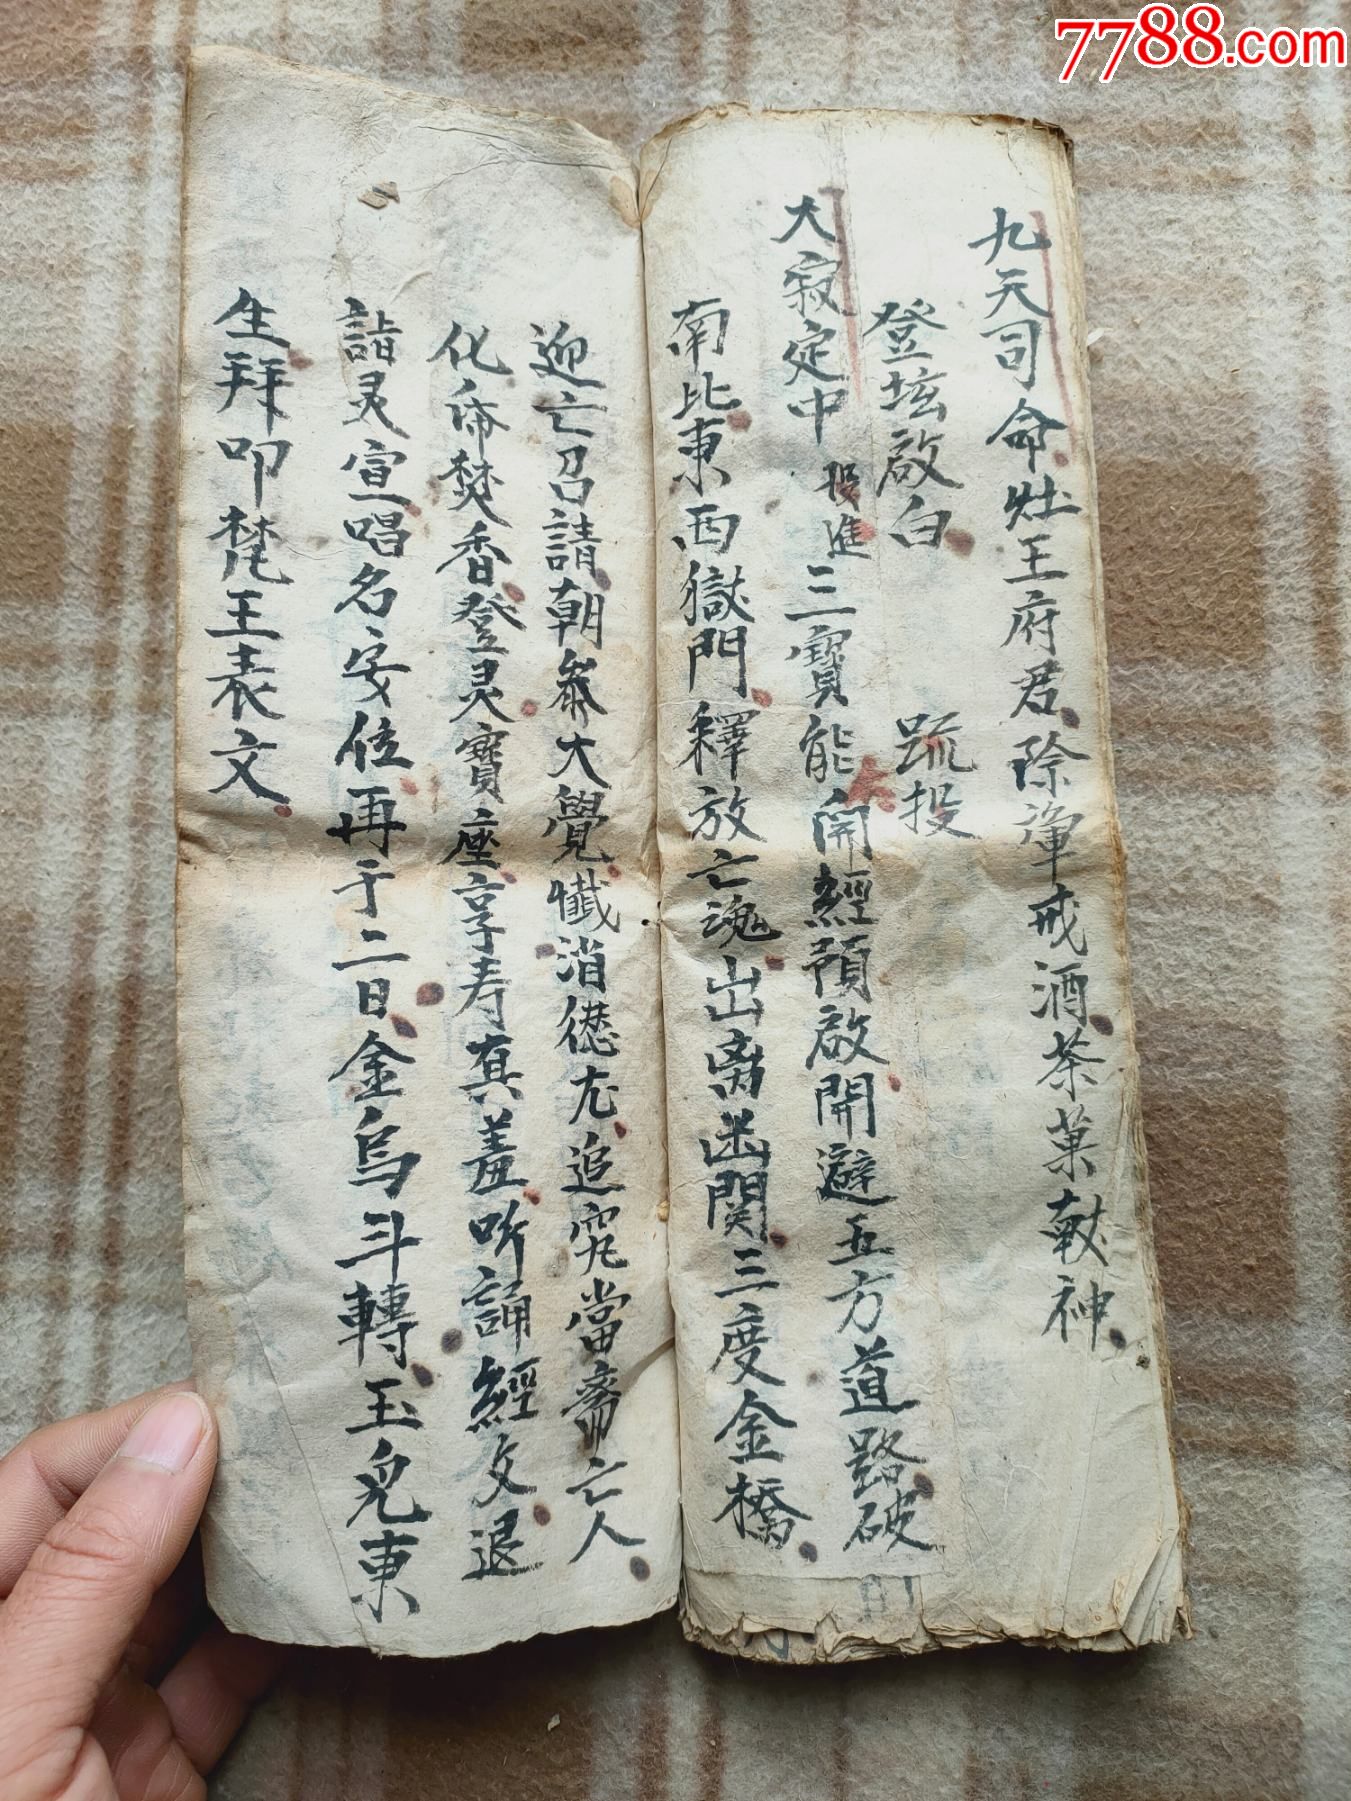 7788.com
九天司命灶王府君除葷戒酒茶菓献神
登坛啟白 疏投
大寂定中 投進 三寳能開經預啟開避五方道路破
南比東西獄門釋放亡魂出离幽関三度金橋
迎亡召請朝參大覺懺消愆尤追究當齋亡人
化帛焚香登灵寳座享寿真羞听誦經文退
詣灵宣唱名安位再于二日金烏斗轉玉兎東
生拜叩梵王表文